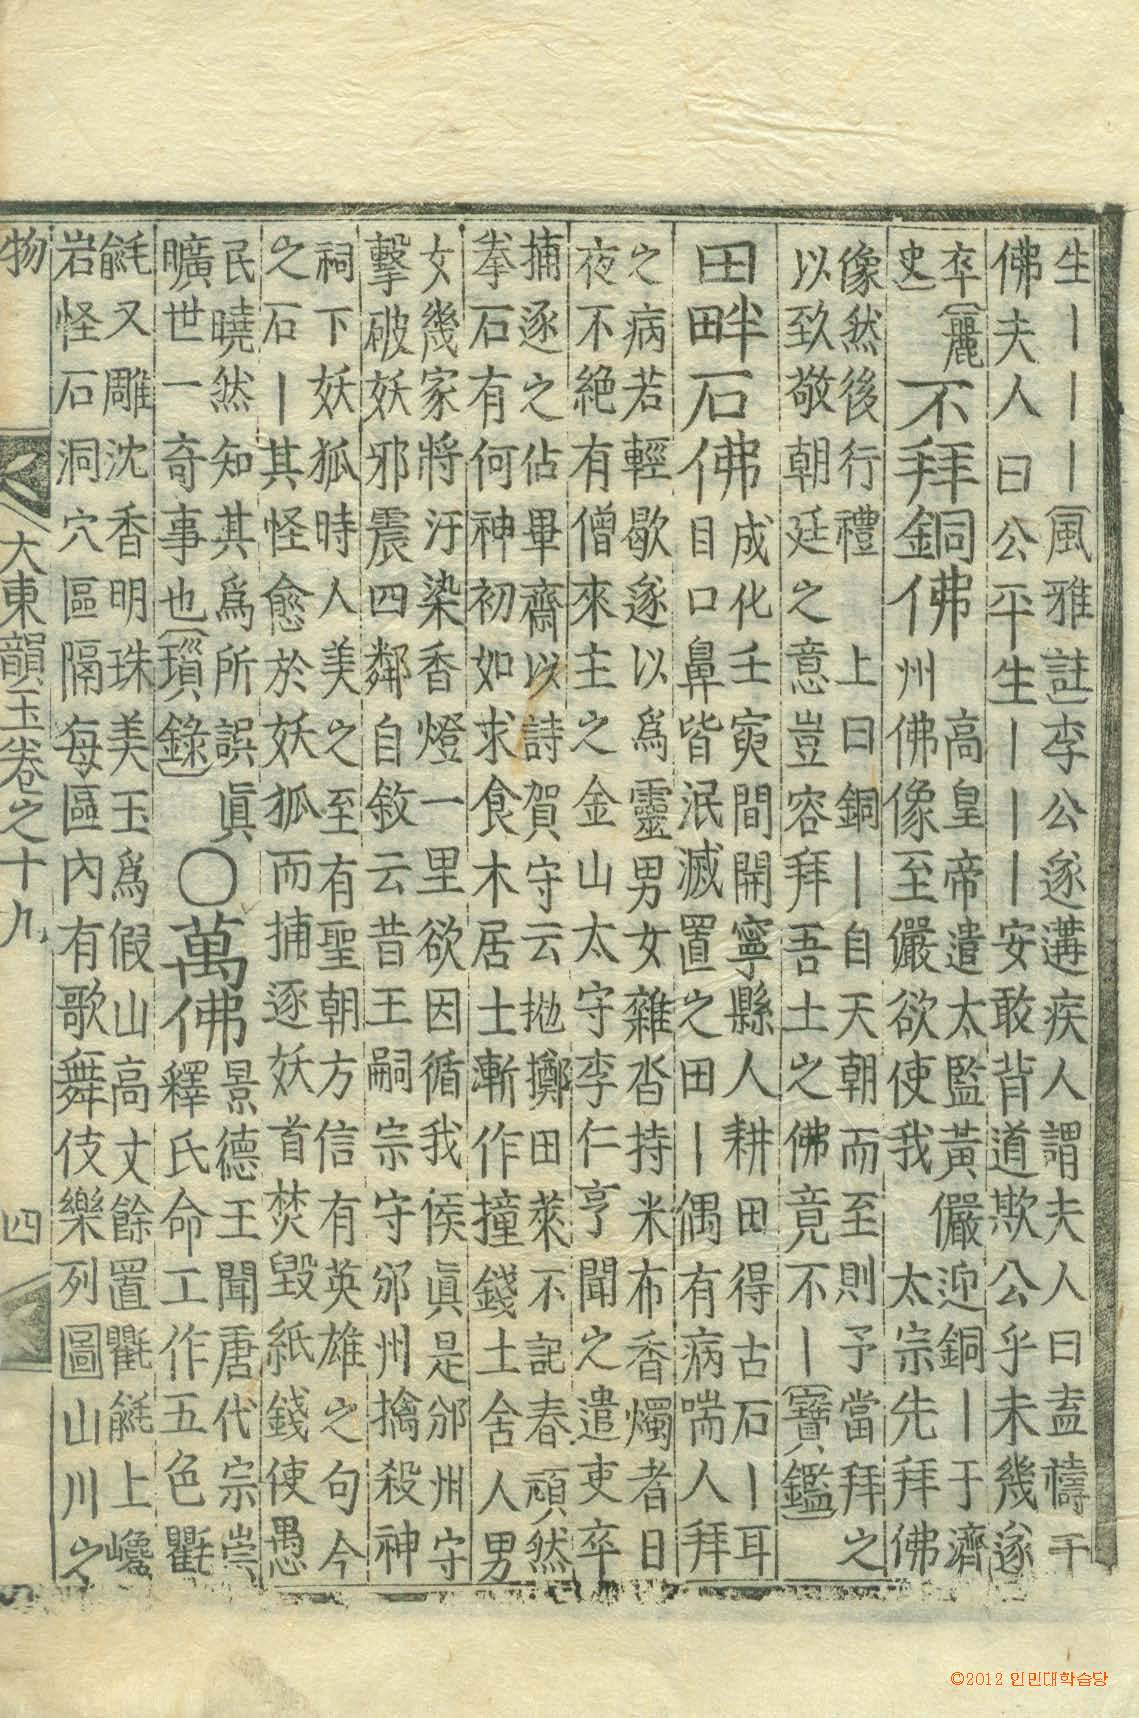 生丨丨丨(風雅註)李公遂遘疾人謂夫人曰盍禱于
佛夫人曰公平生丨丨丨安敢背道欺公乎未幾遂
卒(麗
史)
不拜銅佛
高皇帝遣太監黃儼迎銅丨于濟
州佛像至儼欲使我 太宗先拜佛
像然後行禮 上曰銅丨自天朝而至則予當拜之
以致敬朝廷之意豈容拜吾土之佛竟不丨(寶鑑)
田畔石佛
成化壬寅間開寧縣人耕田得古石丨耳
目口鼻皆泯滅置之田丨偶有病喘人拜
之病若輕歇遂以爲靈男女雜沓持米布香燭者日
夜不絶有僧來主之金山太守李仁亨聞之遣吏卒
捕逐之佔畢齋以詩賀守云抛擲田萊不記春頑然
拳石有何神初如求食木居士漸作撞錢土舍人男
女幾家將汙染香燈一里欲因循我侯眞是邠州守
擊破妖邪震四鄰自敘云昔王嗣宗守邠州擒殺神
祠下妖狐時人美之至有聖朝方信有英雄之句今
之石丨其怪愈於妖狐而捕逐妖首焚毀紙錢使愚
民曉然知其爲所誤眞
曠世一奇事也(瑣錄)
○萬佛
景德王聞唐代宗崇
釋氏命工作五色氍
毹又雕沈香明珠美玉爲假山高丈餘置氍毹上巉
岩怪石洞穴區隔每區內有歌舞伎樂列圖山川之
物
大東韻玉卷之十九
四
©2012 인민대학습당